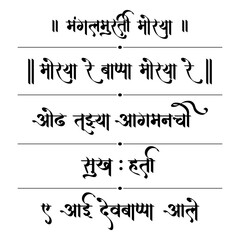 ॥ मंगलमुरर्ती मोरया ॥
॥ मोरया रे बाप्पा मोरया रे ॥
ओढ तुझ्या आगमनाची
सुख : हर्ता
ए आई देवबाप्पा आले